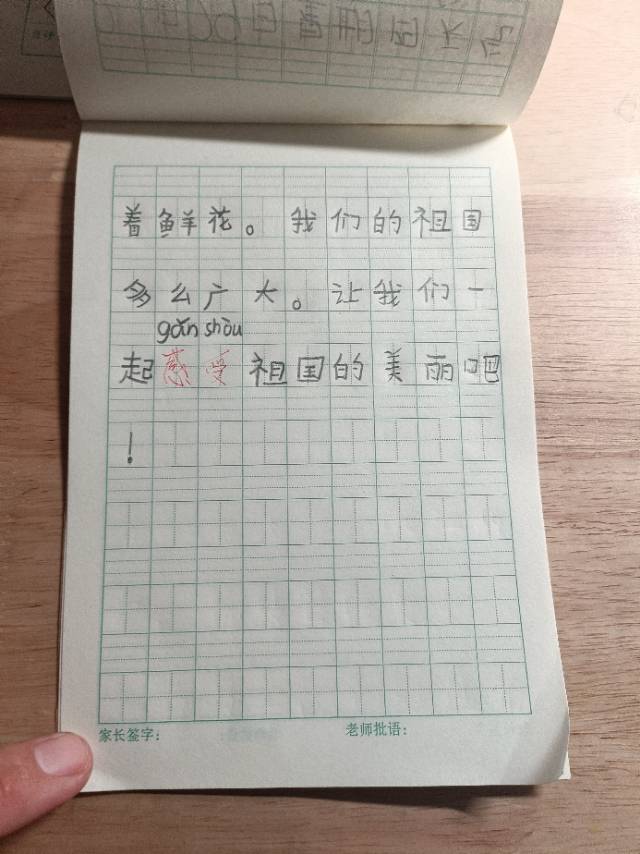 着鲜花。我们的祖国
多么广大。让我们一
gǎn shòu
起感受祖国的美丽吧
！
家长签字：
老师批语：